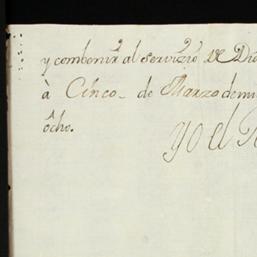 y combenir al servizio De Dio
à Cinco de Marzo de mi
ocho.
Yo el R